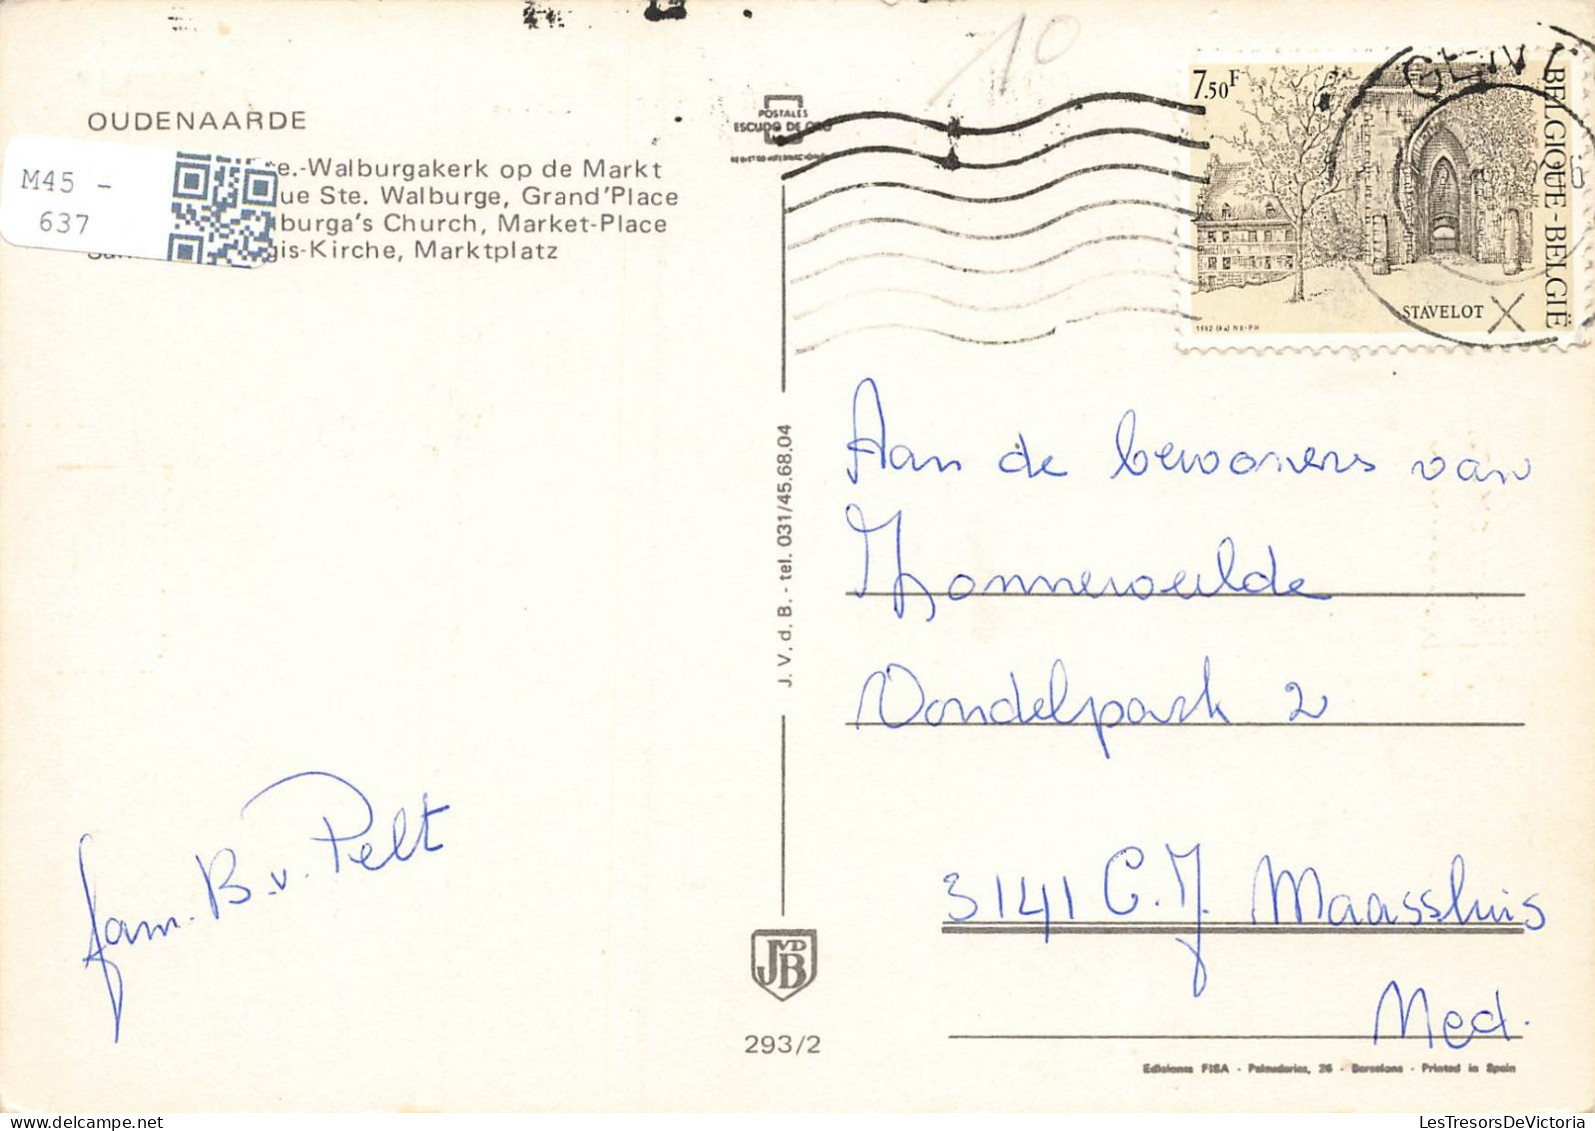 10
OUDENAARDE
M45 -
637
e.-Walburgakerk op de Markt
ue Ste. Walburge, Grand'Place
lburga's Church, Market-Place
gis-Kirche, Marktplatz
POSTALES
ESCUDO DE ORO
7.50F
BELGIQUE-BELGIË
STAVELOT
GENT
J. V. d. B. - tel. 031/45.68.04
Aan de bewoners van
Zonneweelde
Vondelpark 2
3141 C.J. Maassluis
Ned.
fam. B. v. Pelt
JVDB
293/2
Ediciones FISA - Palaudarias, 26 - Barcelona - Printed in Spain
LesTresorsDeVictoria